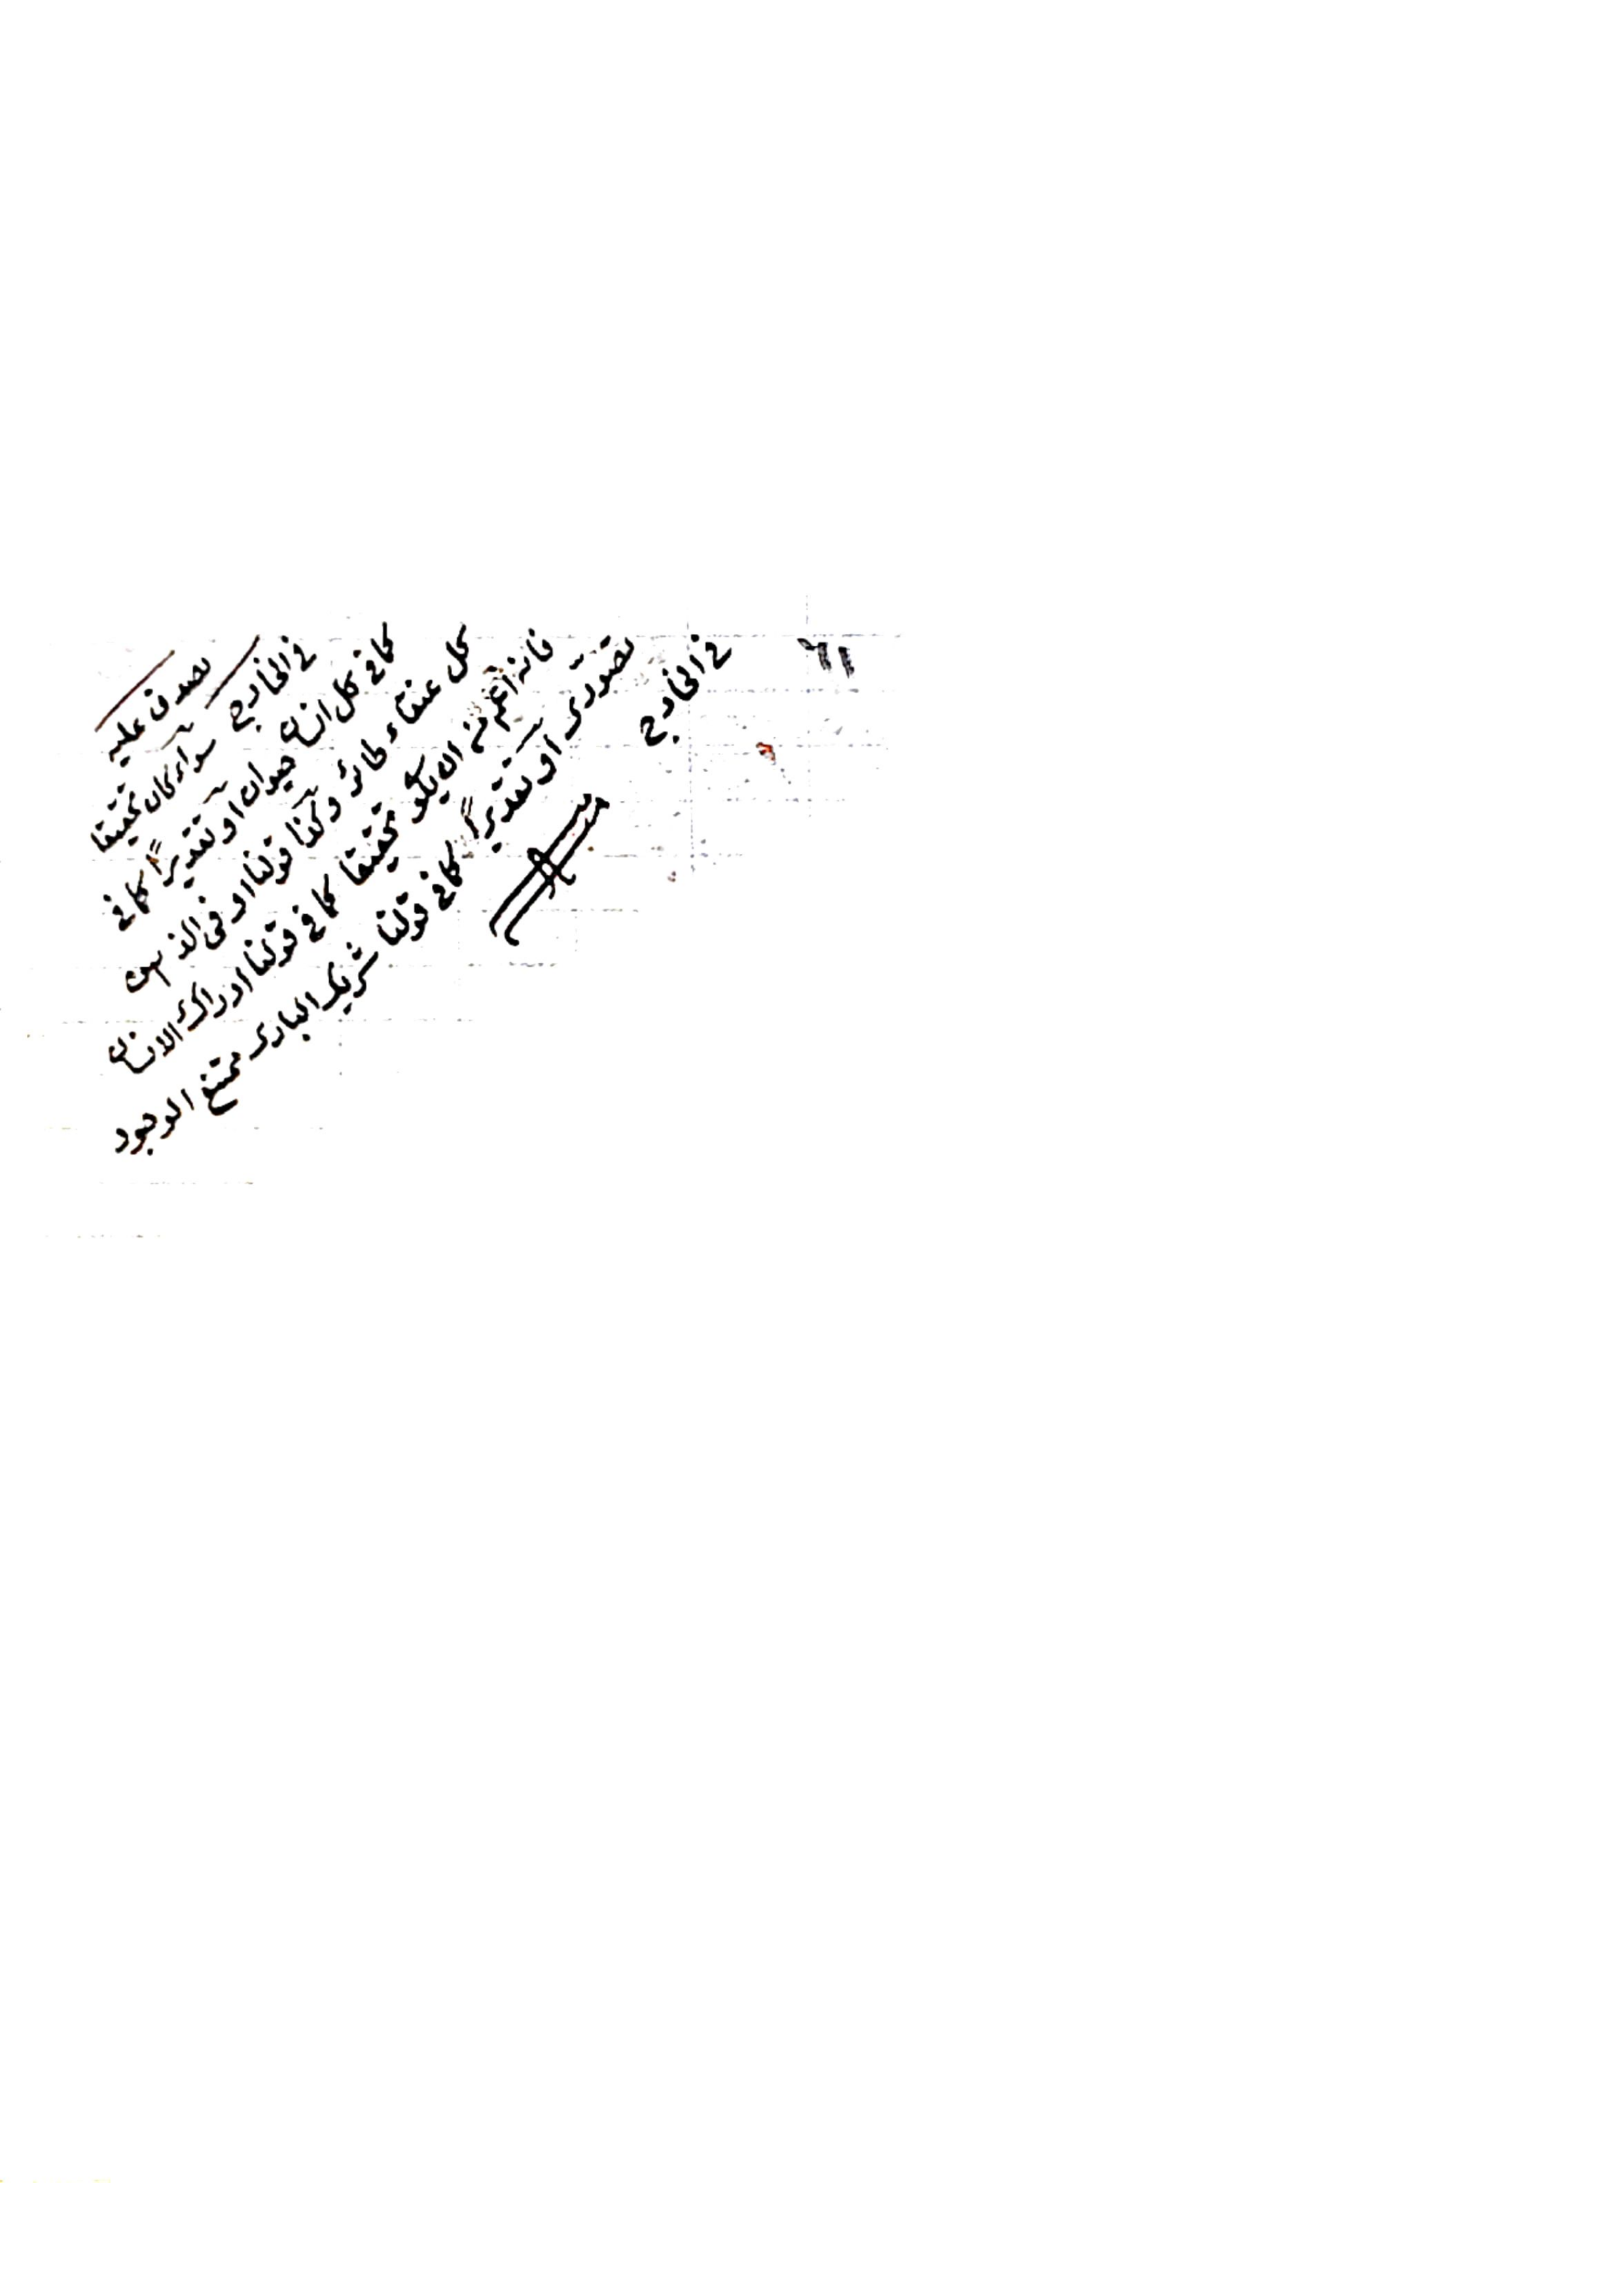 ٦١
يصدق عليه
في الخارج سواء كان محققا
كما في كل انسان حيوان او مقدرا كما في
كل عنقاء طائر وكذا قولنا او في الذهن
فانه اعم من ان يكون محققا كما في قولنا ادراك الانسان
تصوري او مقدرا كما في قولنا شريك الباري ممتنع الوجود
في الخارج